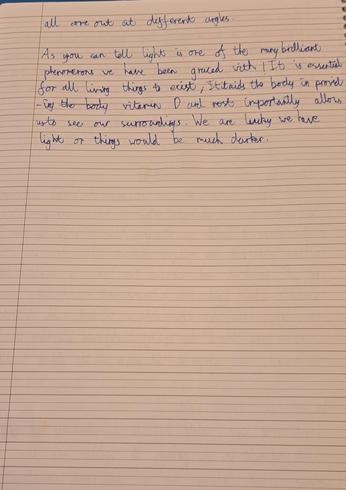 all come out at different angles.
As you can tell light is one of the many brilliant
phenomenons we have been graced with! It is essential
for all living things to exist, it aids the body in provid
-ing the body vitamin D and most importantly allows
us to see our surroundings. We are lucky we have
light or things would be much darker.